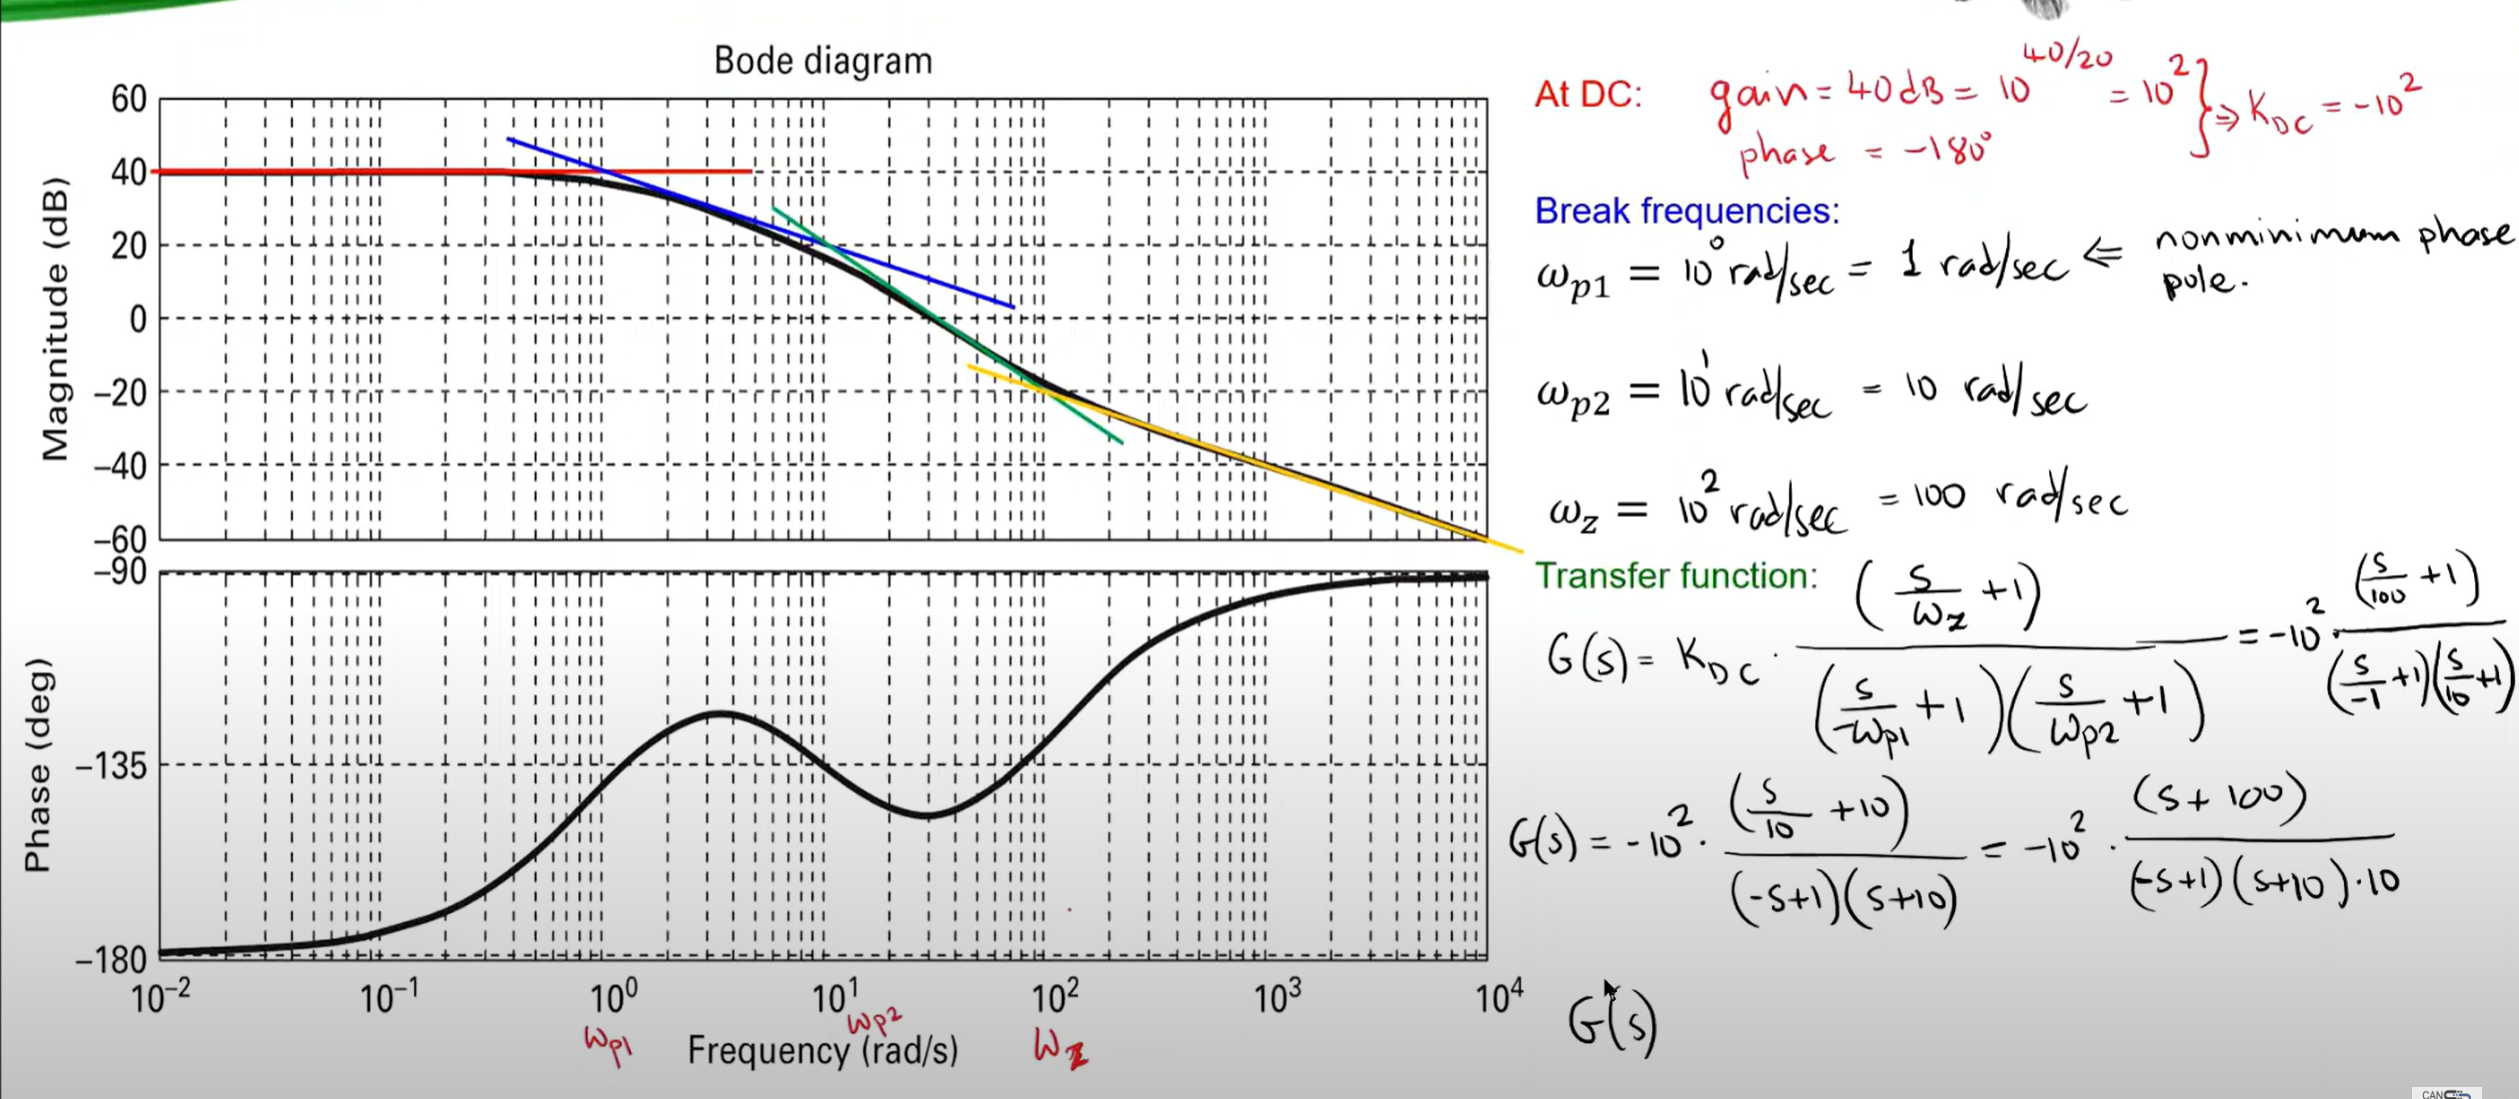 Bode diagram
60
40
20
0
−20
−40
−60
Magnitude (dB)
−90
−135
−180
Phase (deg)
10⁻² 10⁻¹ 10⁰ 10¹ 10² 10³ 10⁴
ωp1 ωp2 ωz
Frequency (rad/s)
At DC: gain = 40 dB = 10^(40/20) = 10² } ⇒ K_DC = -10²
phase = -180°
Break frequencies:
ωp1 = 10⁰ rad/sec = 1 rad/sec ⇐ nonminimum phase
pole.
ωp2 = 10¹ rad/sec = 10 rad/sec
ωz = 10² rad/sec = 100 rad/sec
Transfer function:
G(s) = K_DC · (s/ωz +1) / (s/-ωp1 +1)(s/ωp2 +1) = -10² · (s/100 +1) / (s/-1 +1)(s/10 +1)
G(s) = -10² · (s/10 +10) / (-s+1)(s+10) = -10² · (s+100) / (-s+1)(s+10)·10
G(s)